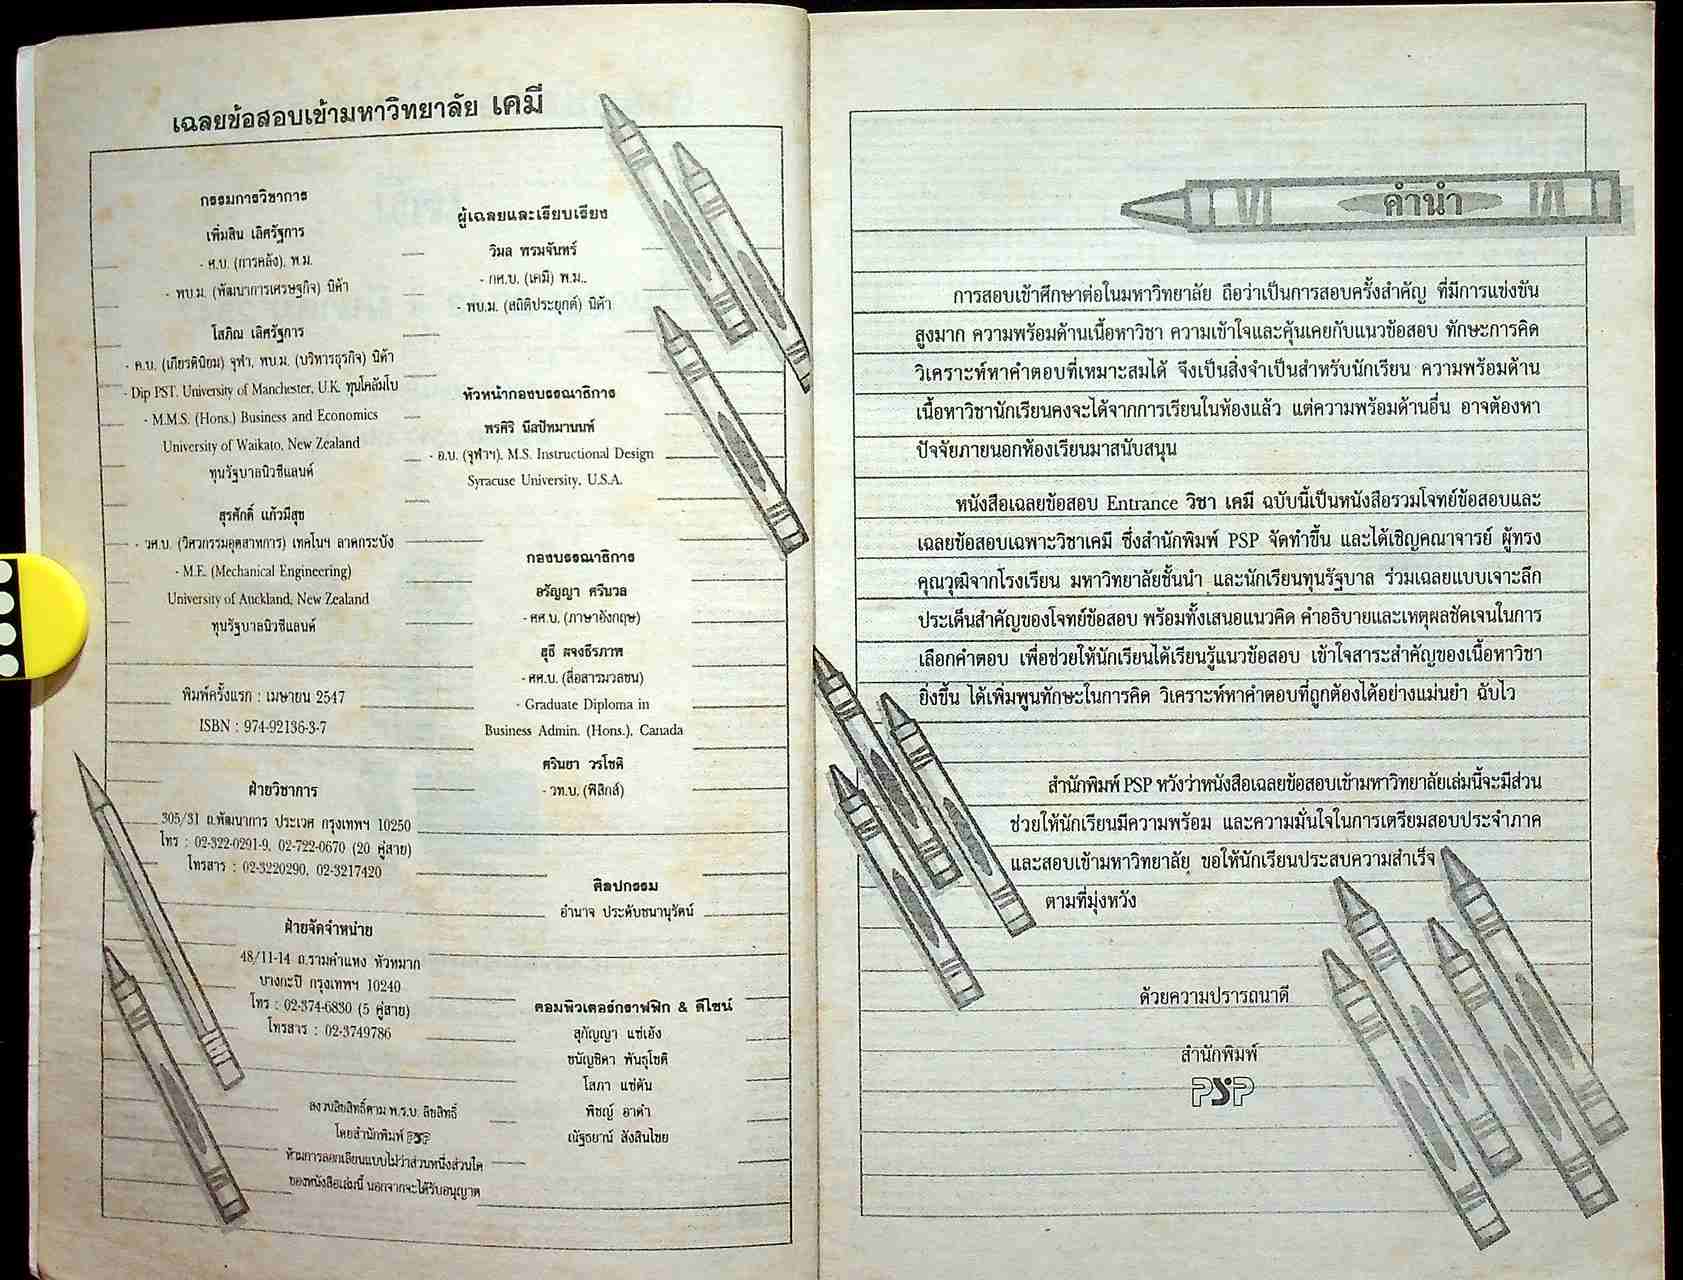 เฉลยข้อสอบเข้ามหาวิทยาลัย เคมี
กรรมการวิชาการ
เพิ่มสิน เลิศรัฐการ
- ศ.บ. (การคลัง), พ.ม.
- พบ.ม. (พัฒนาการเศรษฐกิจ) นิด้า
โสภิณ เลิศรัฐการ
- ค.บ. (เกียรตินิยม) จุฬา, พบ.ม. (บริหารธุรกิจ) นิด้า
- Dip PST. University of Manchester, U.K. ทุนโคลัมโบ
- M.M.S. (Hons.) Business and Economics
University of Waikato, New Zealand
ทุนรัฐบาลนิวซีแลนด์
สุรศักดิ์ แก้วมีสุข
- วศ.บ. (วิศวกรรมอุตสาหการ) เทคโนฯ ลาดกระบัง
- M.E. (Mechanical Engineering)
University of Auckland, New Zealand
ทุนรัฐบาลนิวซีแลนด์
พิมพ์ครั้งแรก : เมษายน 2547
ISBN : 974-92136-3-7
ฝ่ายวิชาการ
305/31 ถ.พัฒนาการ ประเวศ กรุงเทพฯ 10250
โทร : 02-322-0291-9, 02-722-0670 (20 คู่สาย)
โทรสาร : 02-3220290, 02-3217420
ฝ่ายจัดจำหน่าย
48/11-14 ถ.รามคำแหง หัวหมาก
บางกะปิ กรุงเทพฯ 10240
โทร : 02-374-6830 (5 คู่สาย)
โทรสาร : 02-3749786
สงวนลิขสิทธิ์ตาม พ.ร.บ. ลิขสิทธิ์
โดยสำนักพิมพ์ PSP
ห้ามการลอกเลียนแบบไม่ว่าส่วนหนึ่งส่วนใด
ของหนังสือเล่มนี้ นอกจากจะได้รับอนุญาต
ผู้เฉลยและเรียบเรียง
วิมล พรมจันทร์
- กศ.บ. (เคมี) พ.ม.,
- พบ.ม. (สถิติประยุกต์) นิด้า
หัวหน้ากองบรรณาธิการ
พรศิริ นีลปัทมานนท์
- อ.บ. (จุฬาฯ), M.S. Instructional Design
Syracuse University, U.S.A.
กองบรรณาธิการ
อรัญญา ศรีนวล
- ศศ.บ. (ภาษาอังกฤษ)
สุธี ผจงธีรภาพ
- ศศ.บ. (สื่อสารมวลชน)
- Graduate Diploma in
Business Admin. (Hons.), Canada
ศรินยา วรโชติ
- วท.บ. (ฟิสิกส์)
ศิลปกรรม
อำนาจ ประดับชนานุรัตน์
คอมพิวเตอร์กราฟฟิก & ดีไซน์
สุกัญญา แซ่เฮ้ง
ชนัญชิดา พันธุโชติ
โสภา แซ่ตัน
พิชญ์ อาดำ
ณัฐธยาน์ สังสินไชย
คำนำ
การสอบเข้าศึกษาต่อในมหาวิทยาลัย ถือว่าเป็นการสอบครั้งสำคัญ ที่มีการแข่งขัน
สูงมาก ความพร้อมด้านเนื้อหาวิชา ความเข้าใจและคุ้นเคยกับแนวข้อสอบ ทักษะการคิด
วิเคราะห์หาคำตอบที่เหมาะสมได้ จึงเป็นสิ่งจำเป็นสำหรับนักเรียน ความพร้อมด้าน
เนื้อหาวิชานักเรียนคงจะได้จากการเรียนในห้องแล้ว แต่ความพร้อมด้านอื่น อาจต้องหา
ปัจจัยภายนอกห้องเรียนมาสนับสนุน
หนังสือเฉลยข้อสอบ Entrance วิชา เคมี ฉบับนี้เป็นหนังสือรวมโจทย์ข้อสอบและ
เฉลยข้อสอบเฉพาะวิชาเคมี ซึ่งสำนักพิมพ์ PSP จัดทำขึ้น และได้เชิญคณาจารย์ ผู้ทรง
คุณวุฒิจากโรงเรียน มหาวิทยาลัยชั้นนำ และนักเรียนทุนรัฐบาล ร่วมเฉลยแบบเจาะลึก
ประเด็นสำคัญของโจทย์ข้อสอบ พร้อมทั้งเสนอแนวคิด คำอธิบายและเหตุผลชัดเจนในการ
เลือกคำตอบ เพื่อช่วยให้นักเรียนได้เรียนรู้แนวข้อสอบ เข้าใจสาระสำคัญของเนื้อหาวิชา
ยิ่งขึ้น ได้เพิ่มพูนทักษะในการคิด วิเคราะห์หาคำตอบที่ถูกต้องได้อย่างแม่นยำ ฉับไว
สำนักพิมพ์ PSP หวังว่าหนังสือเฉลยข้อสอบเข้ามหาวิทยาลัยเล่มนี้จะมีส่วน
ช่วยให้นักเรียนมีความพร้อม และความมั่นใจในการเตรียมสอบประจำภาค
และสอบเข้ามหาวิทยาลัย ขอให้นักเรียนประสบความสำเร็จ
ตามที่มุ่งหวัง
ด้วยความปรารถนาดี
สำนักพิมพ์
PSP